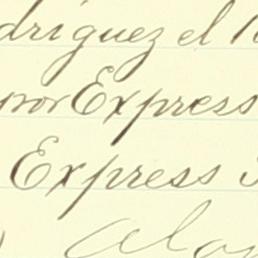 driguez el
por Express
Express